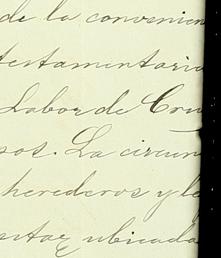 de la convenien
testamentaria
Labor de Cru
sos. La circun
herederos y le
ubicada